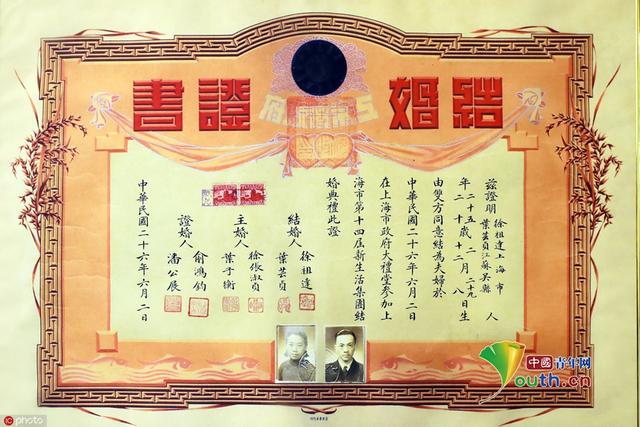 結婚證書
茲證明 徐祖達上海市 葉芸貞江蘇吳縣 人
年 二十五 二十 歲 十二 十二 月 二十九 八 日生
由雙方同意結為夫婦於
中華民國二十六年六月二日
在上海市政府大禮堂參加上
海市第十四屆新生活集團結
婚典禮此證
結婚人 徐祖達 葉芸貞
主婚人 徐張淑貞 葉于衡
證婚人 俞鴻鈞 潘公展
中華民國二十六年六月二日
中國青年网
Youth.cn
iC photo